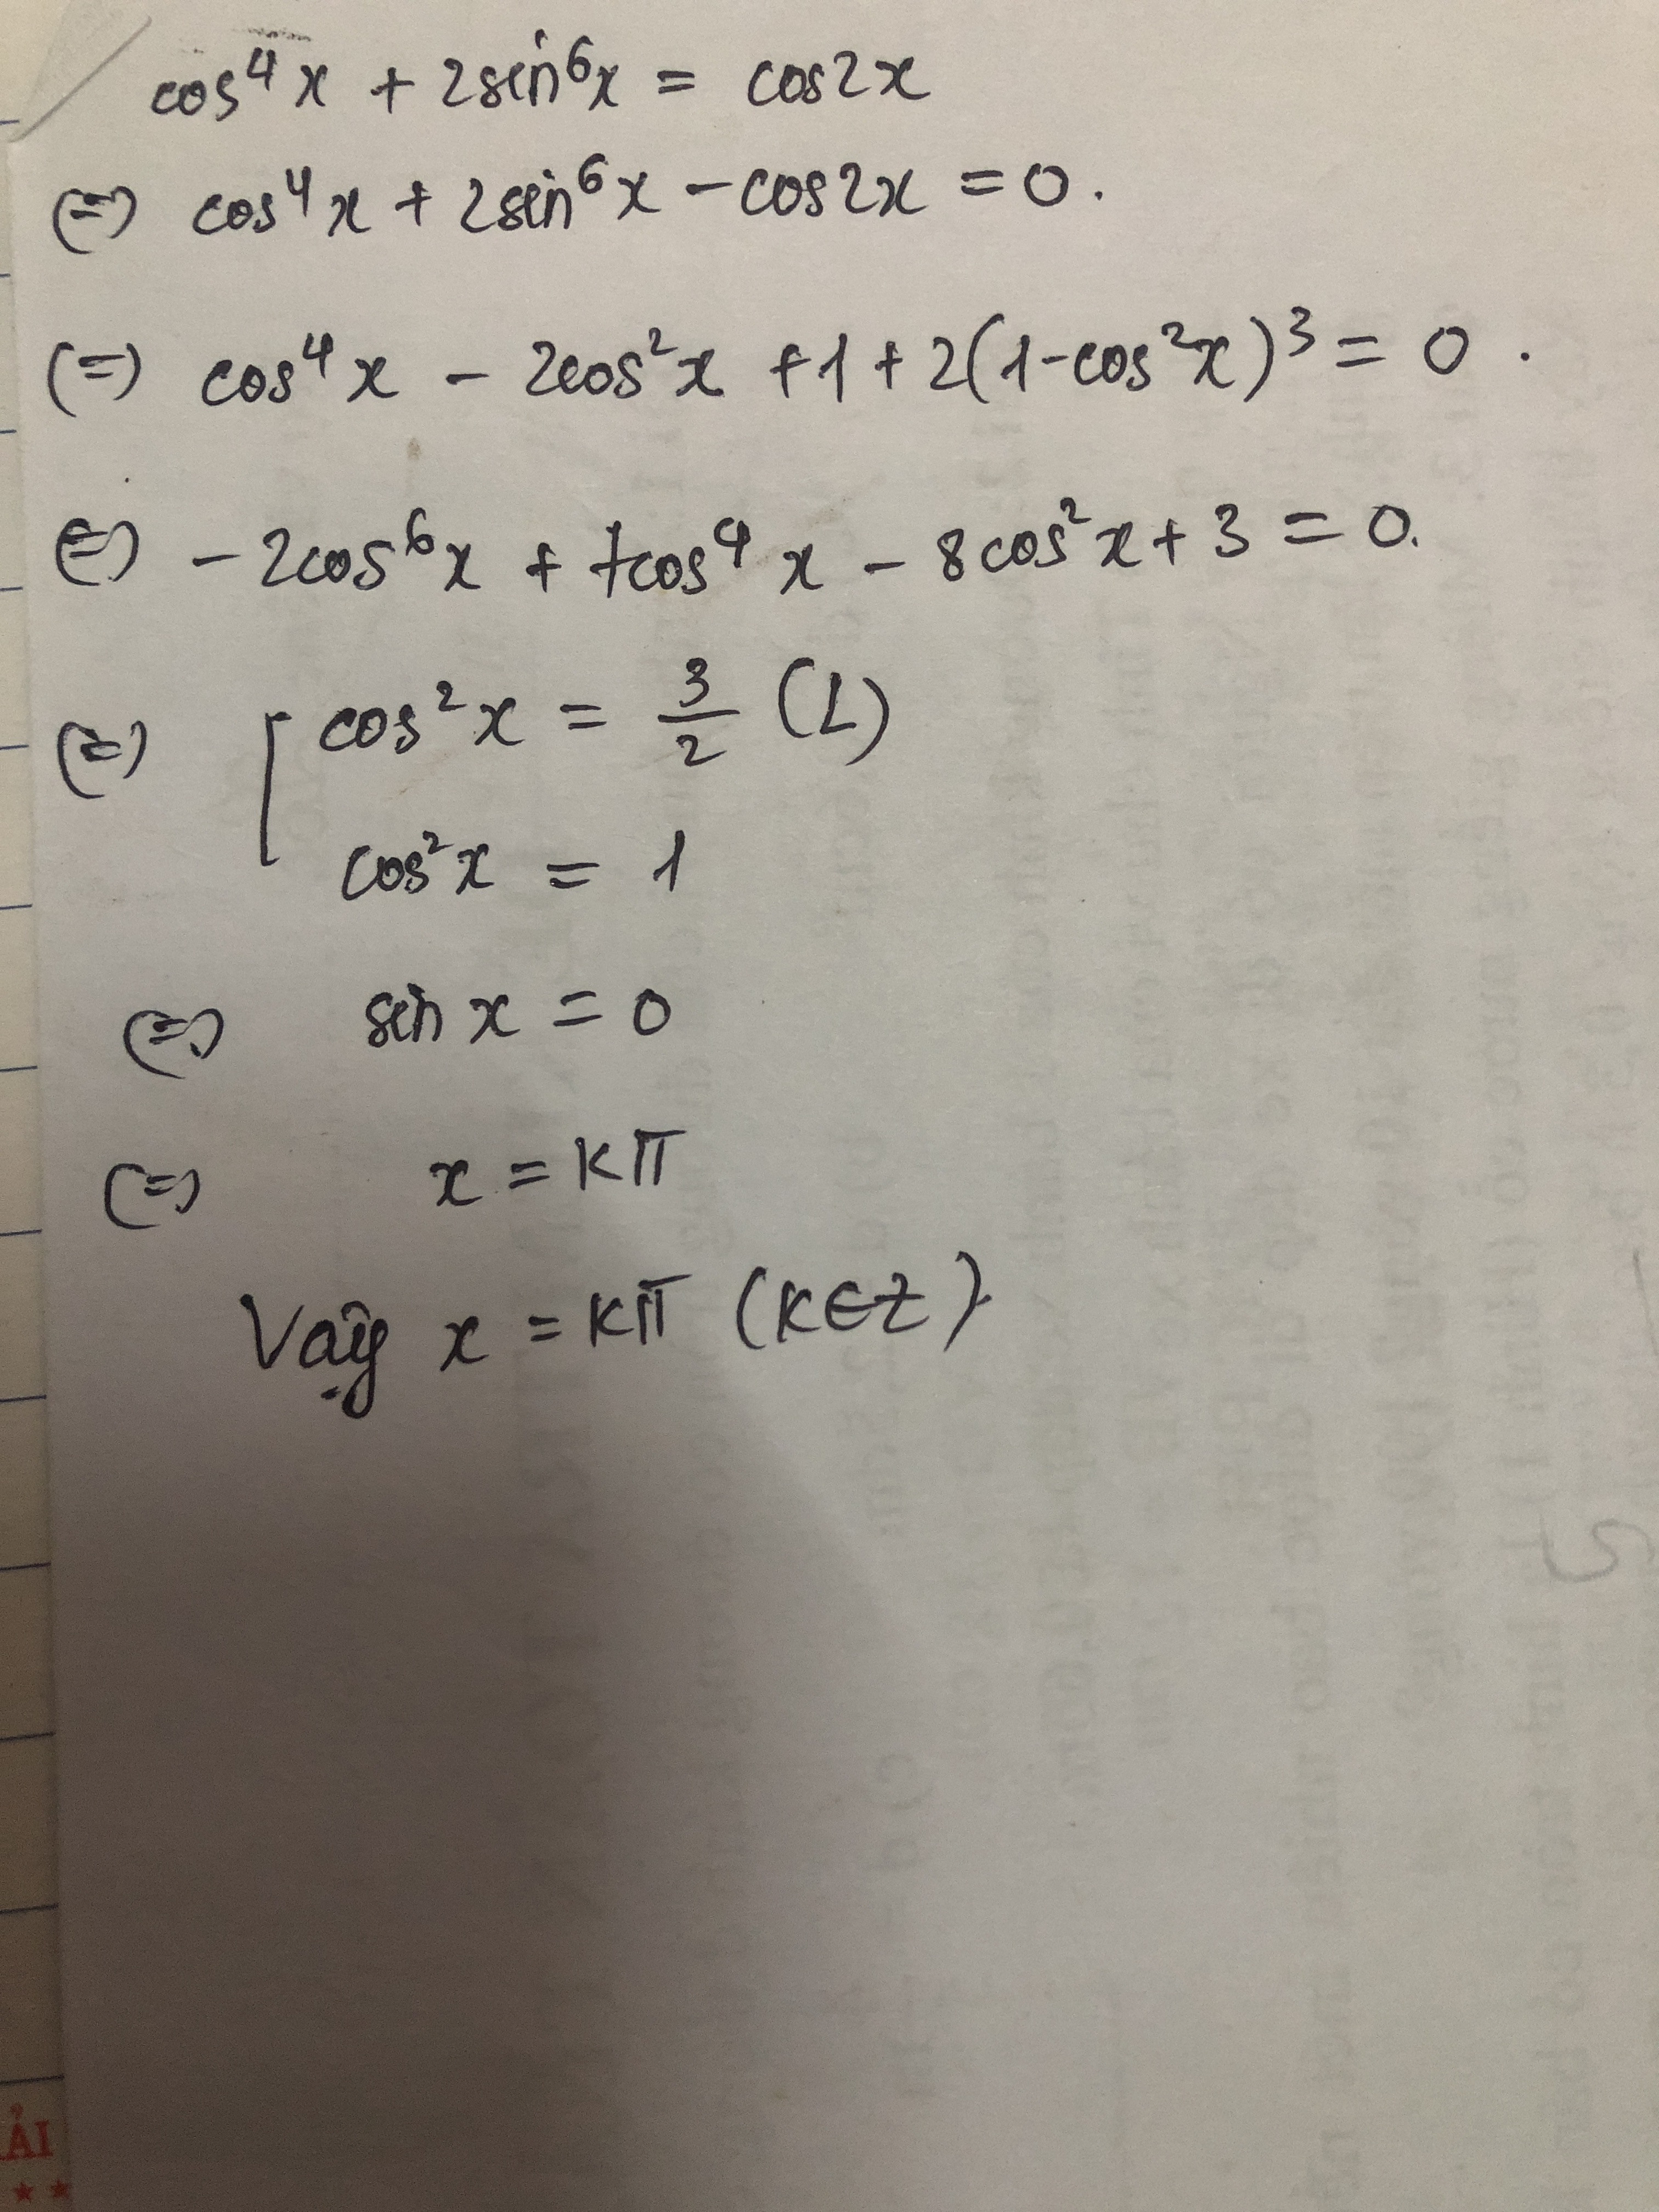 cos⁴x + 2sin⁶x = cos2x
(=) cos⁴x + 2sin⁶x - cos2x = 0.
(=) cos⁴x - 2cos²x + 1 + 2(1-cos²x)³ = 0.
(=) -2cos⁶x + 7cos⁴x - 8cos²x + 3 = 0.
(=) [ cos²x = 3/2 (L)
cos²x = 1
(=) sin x = 0
(=) x = kπ
Vậy x = kπ (k∈Z)
ẢI